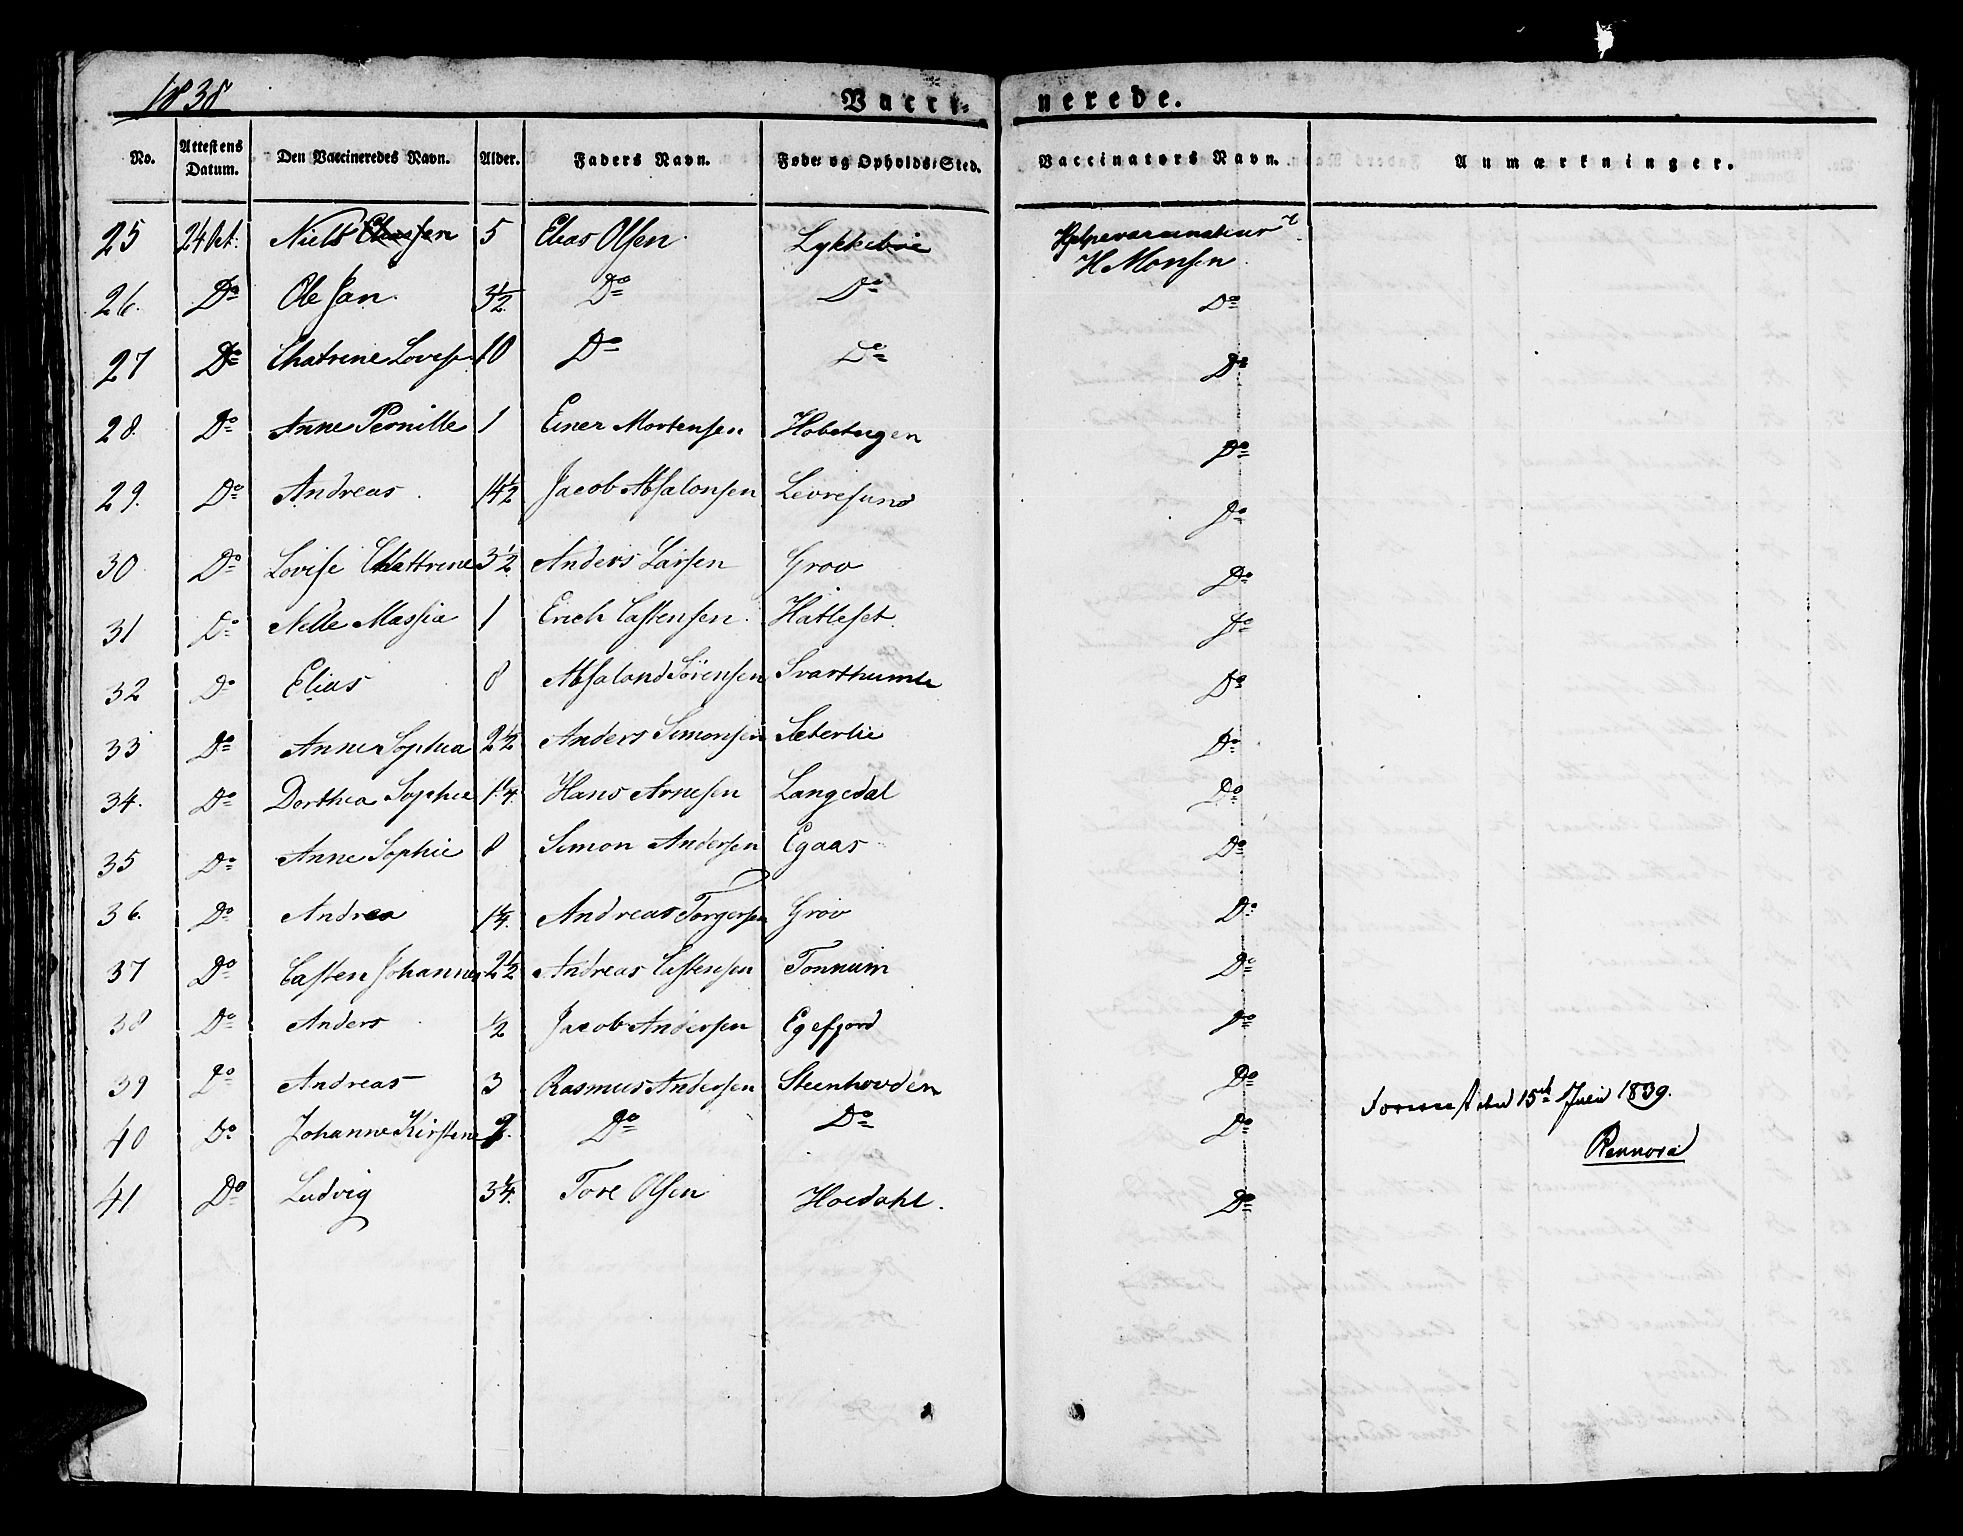 1838
Vacci- nerede.
No. Attestens Datum. Den Vaccineredes Navn. Alder. Faders Navn. Føde- og Opholds-Sted. Vaccinateurs Navn. Anmærkninger.
25 24 Oct: Niels 5 Elias Olsen Lykkeboe Hjelpevaccinateur
H Monsen
26. Do Ole Jan 3½ Do Do Do
27 Do Chatrine Lovise 10 Do Do Do
28. Do Anne Pernille 1 Einer Mortensen Hobetugen Do
29. Do Andreas 14½ Jacob Absalonsen Levresund Do
30 Do Lovise Chattrine 3½ Anders Larsen Grov Do
31 Do Nelle Massia 1 Erich Castensen Hatleset Do
32 Do Elias 8 Absalond Sörensen Svarthumle Do
33 Do Anne Sophia 2½ Anders Simonsen Seterlie Do
34. Do Dorthea Sophie 1¼ Hans Arnesen Langedal Do
35 Do Anne Sophie 8 Simon Andersen Egaas Do
36. Do Andrea 1¼ Andreas Torgersen Grov Do
37 Do Casten Johannes 2½ Andreas Castensen Tonnum Do
38 Do Anders ½ Jacob Andersen Egefjord Do
39 Do Andreas 3 Rasmus Andersen Steenhovden Do
40 Do Johanne Kirstene Do Do Do
41 Do Ludvig 3¼ Tore Olsen Hoedahl. Do
15de Juli 1839.
Rennord